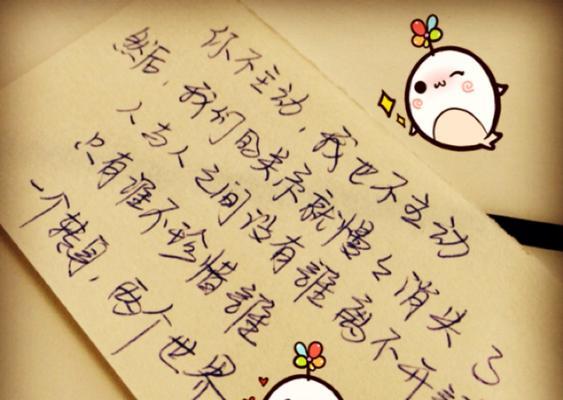 你不主动，我也不主动
然后，我们的关系就慢々消失了
人与人之间没有誰离不开誰
只有谁不珍惜誰
一个转身，两个世界